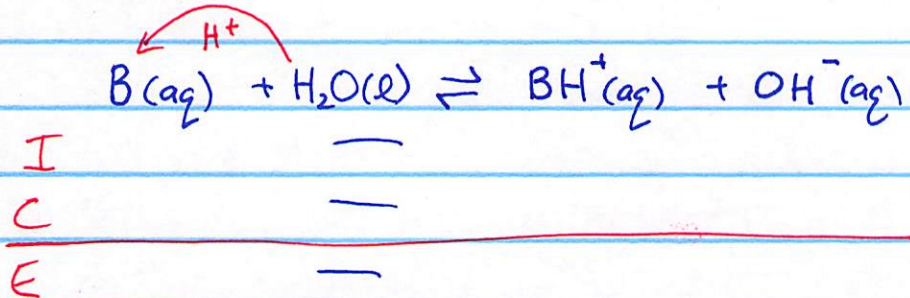 H⁺
B(aq) + H₂O(l) ⇌ BH⁺(aq) + OH⁻(aq)
I —
C —
E —